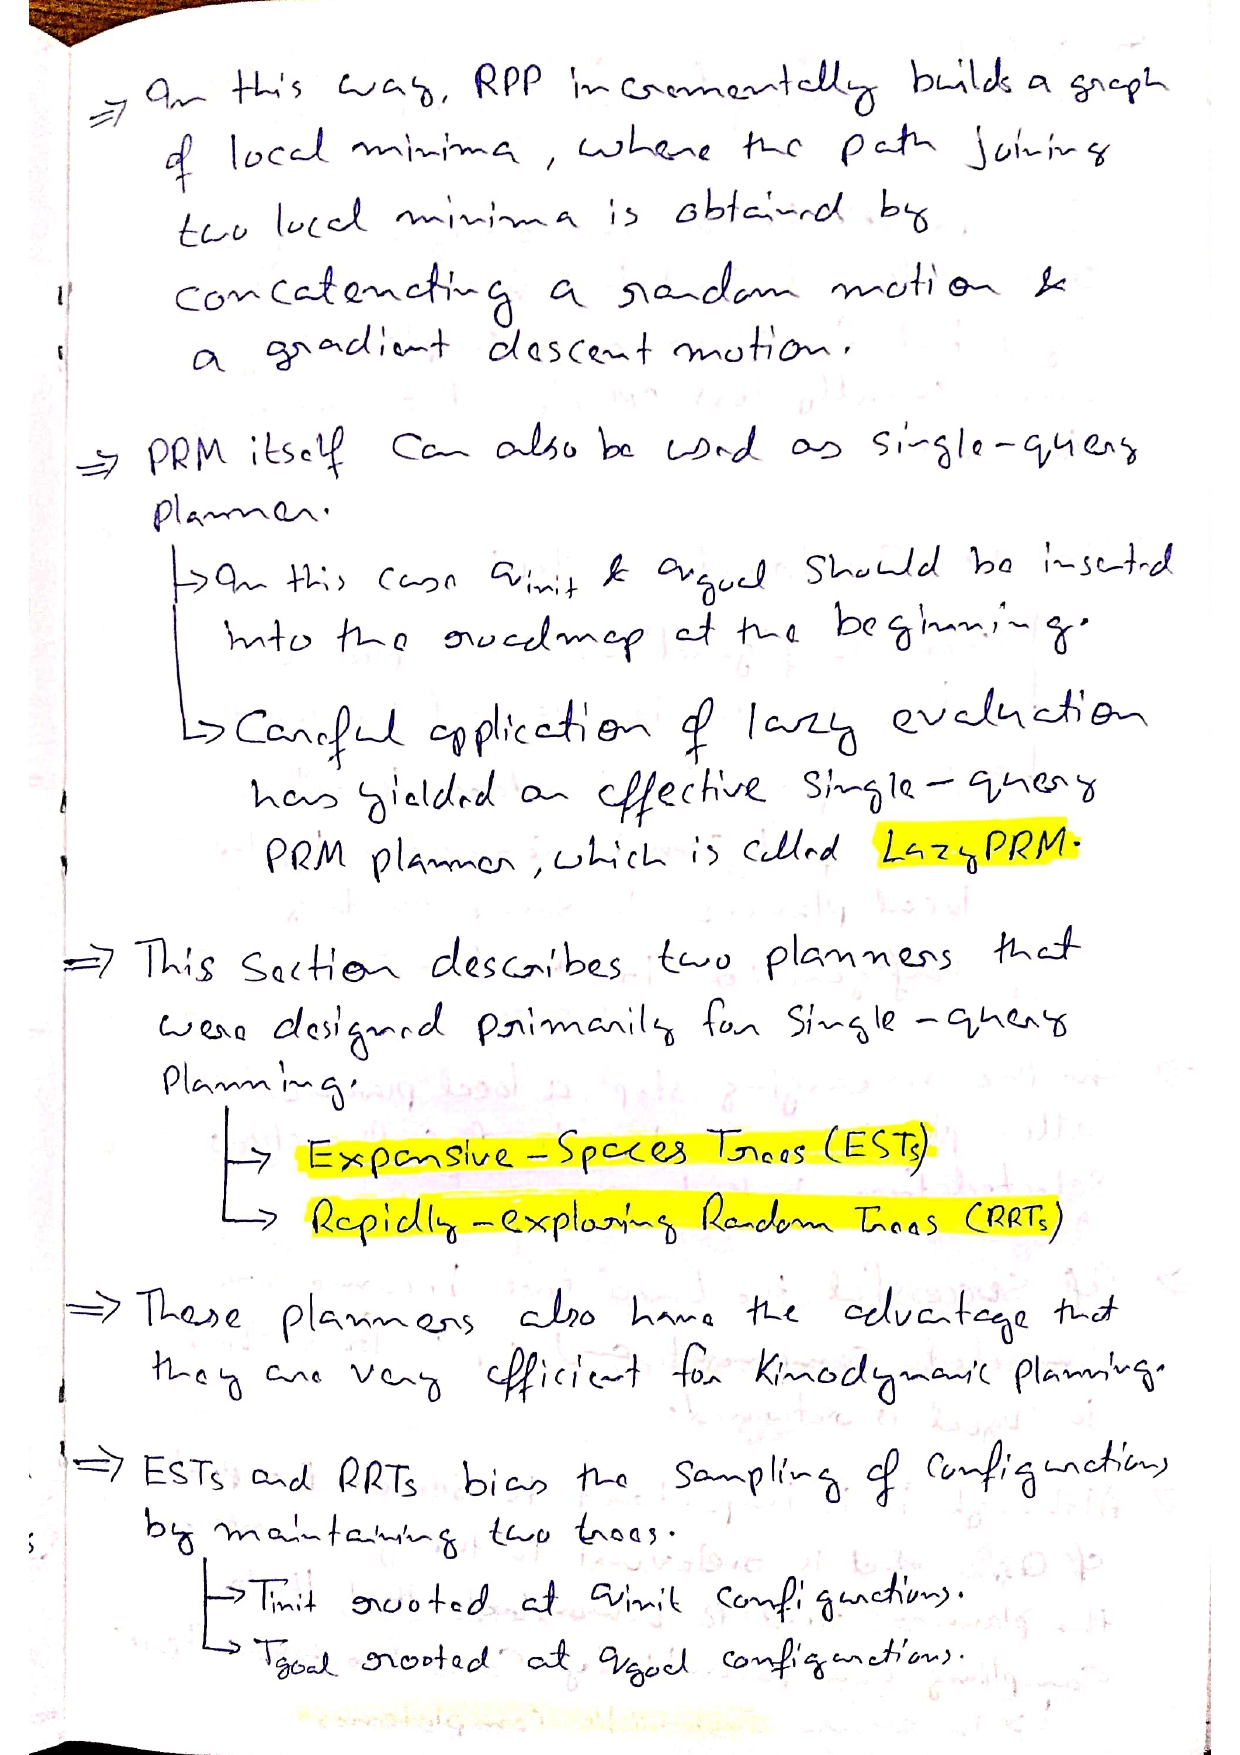 ⇒ In this way, RPP incrementally builds a graph
of local minima, where the path joining
two local minima is obtained by
concatenating a random motion &
a gradient descent motion.
⇒ PRM itself can also be used as single-query
planner.
↳ In this case qinit & qgoal should be inserted
into the roadmap at the beginning.
↳ Careful application of lazy evaluation
has yielded an effective single-query
PRM planner, which is called LazyPRM.
⇒ This section describes two planners that
were designed primarily for single-query
planning.
↳ Expansive-Spaces Trees (ESTs)
↳ Rapidly-exploring Random Trees (RRTs)
⇒ These planners also have the advantage that
they are very efficient for kinodynamic planning.
⇒ ESTs and RRTs bias the sampling of configurations
by maintaining two trees.
↳ Tinit rooted at qinit configurations.
↳ Tgoal rooted at qgoal configurations.